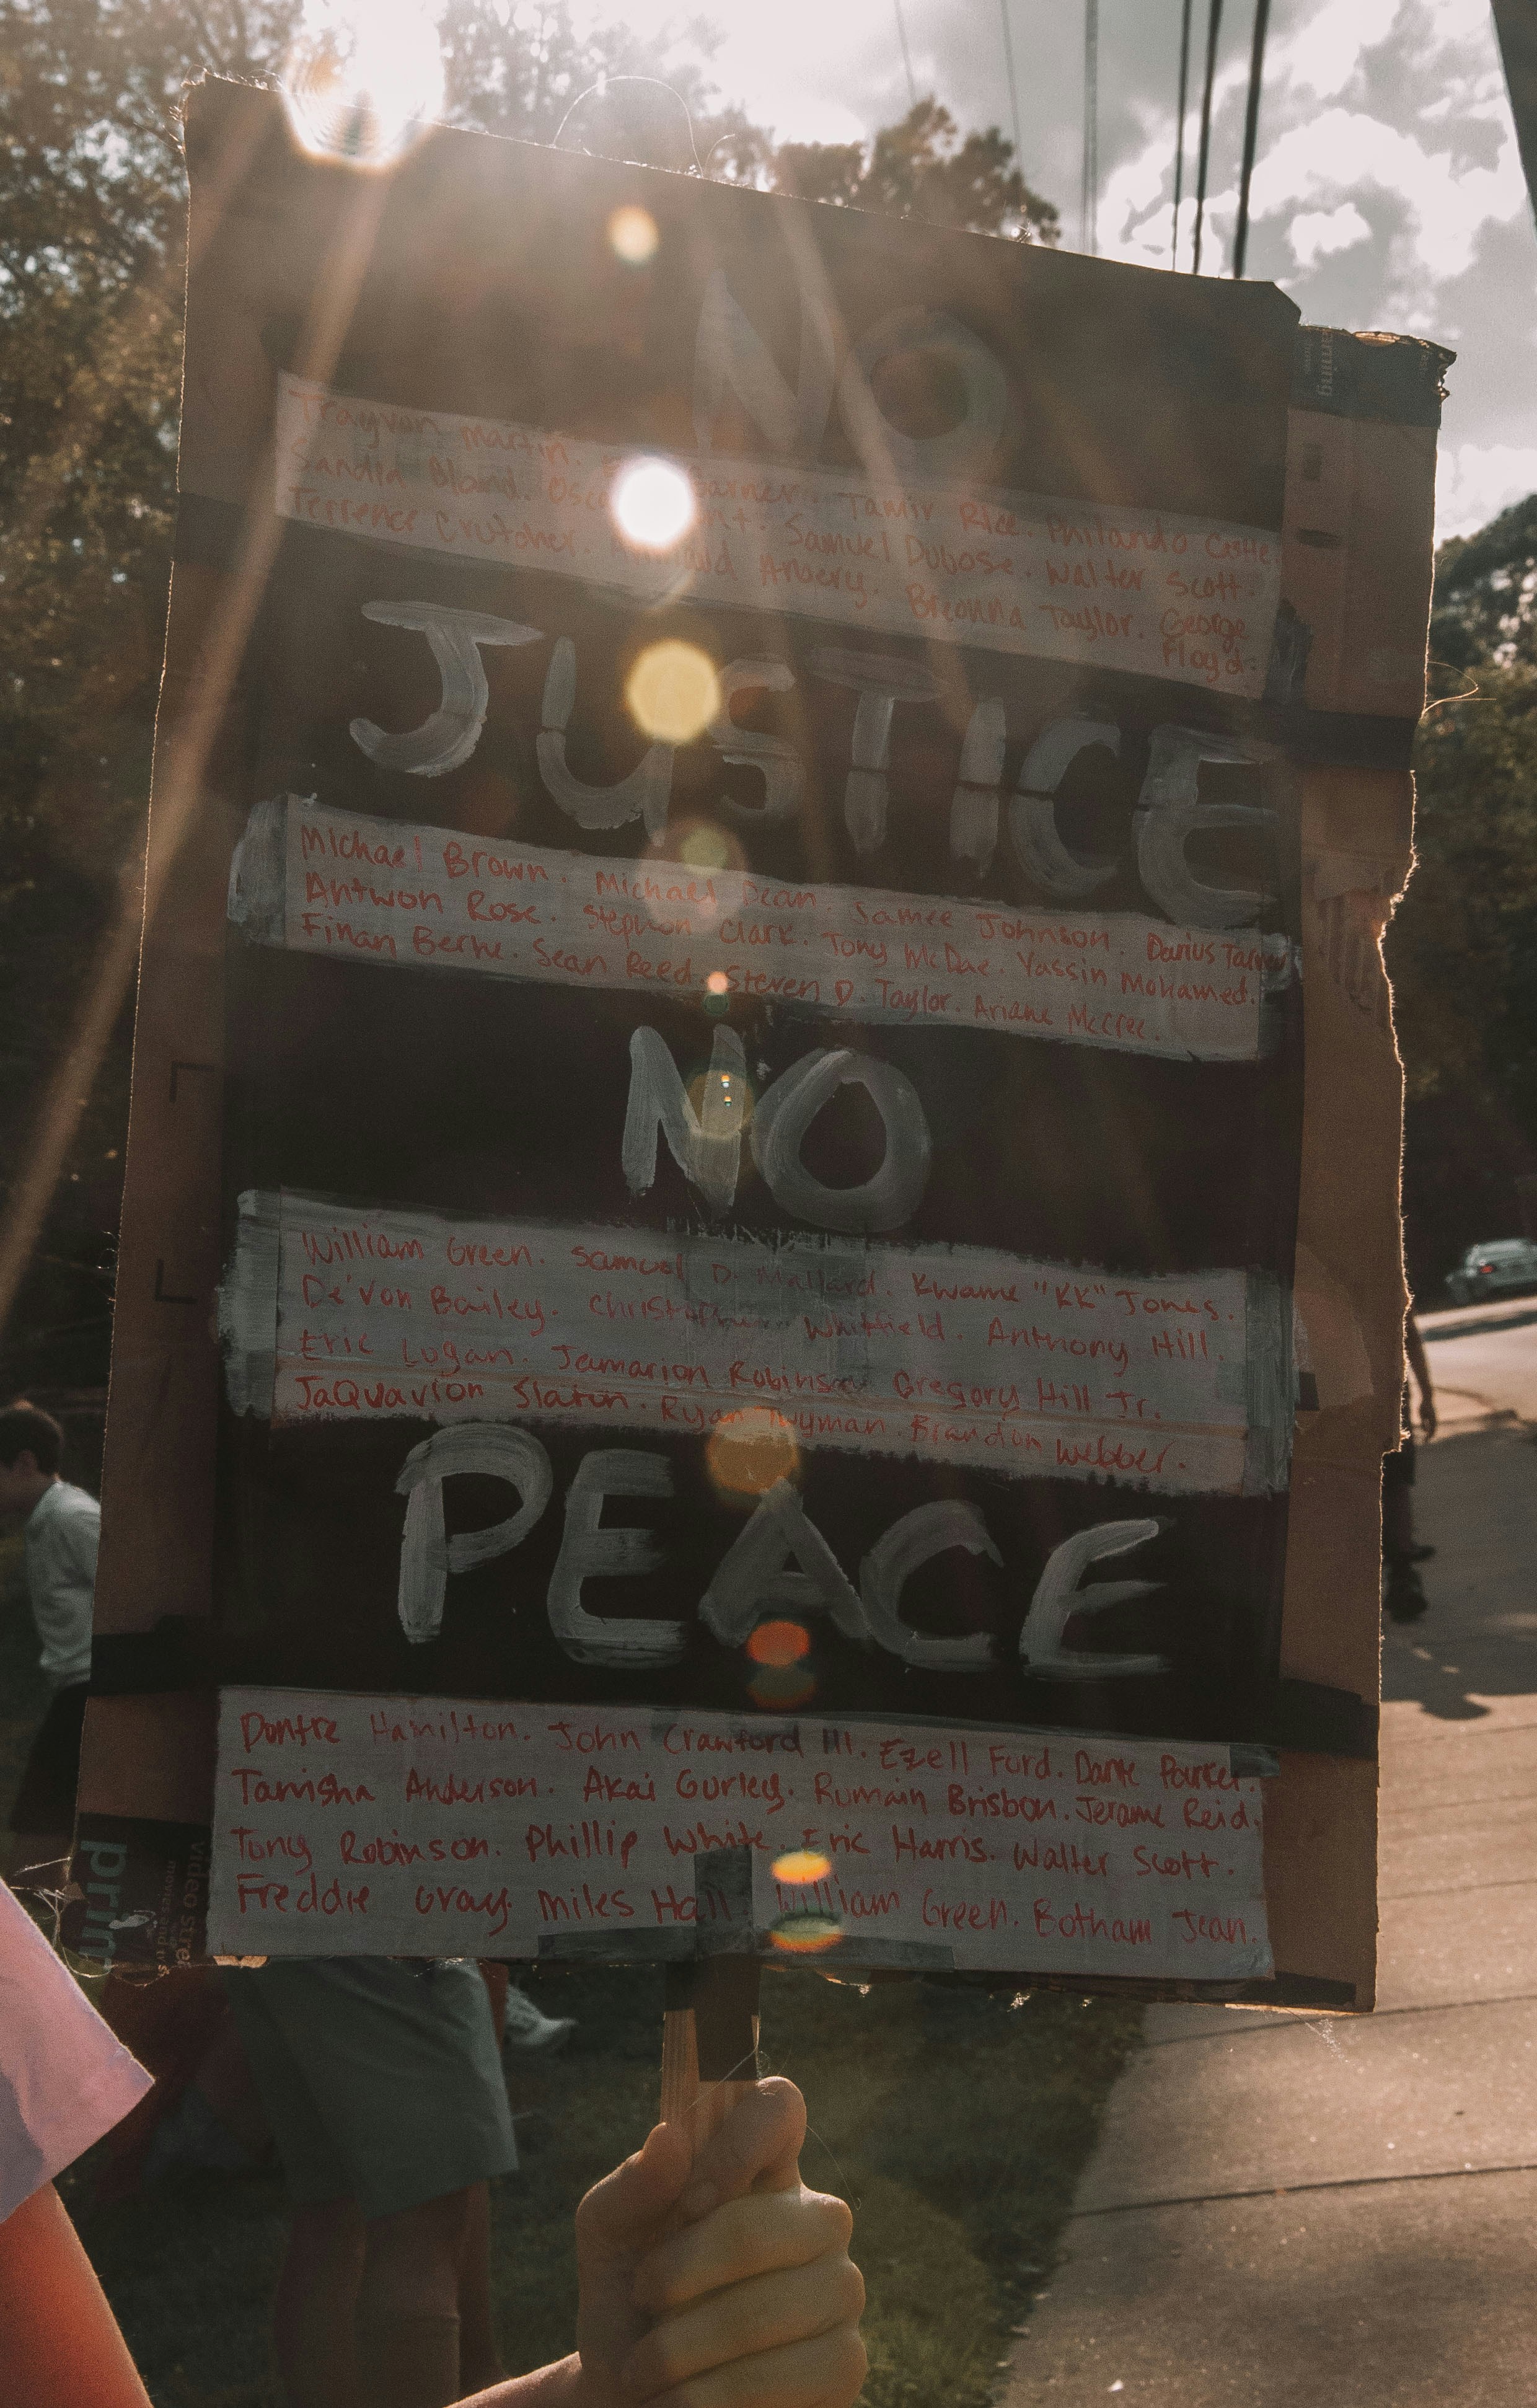 NO
Trayvon Martin. Garner. Tamir Rice. Philando Castile.
Sandra Bland. Samuel Dubose. Walter Scott.
Terrence Crutcher. Breonna Taylor. George
Floyd.
JUSTICE
Michael Brown. Michael Dean. Jamee Johnson. Darius
Antwon Rose. Stephon Clark. Tony McDae. Yassin Mohamed.
Finan Berhe. Sean Reed. Steven D. Taylor. Ariane McCree.
NO
William Green. Samuel D. Mallard. Kwame "KK" Jones.
De'Von Bailey. Christopher Whitfield. Anthony Hill.
Eric Logan. Jamarion Robinson. Gregory Hill Jr.
JaQuavion Slaton. Ryan Twyman. Brandon Webber.
PEACE
Dontre Hamilton. John Crawford III. Ezell Ford. Dante Parker.
Tanisha Anderson. Akai Gurley. Rumain Brisbon. Jerame Reid.
Tony Robinson. Phillip White. Eric Harris. Walter Scott.
Freddie Gray. Miles Hall William Green. Botham Jean.